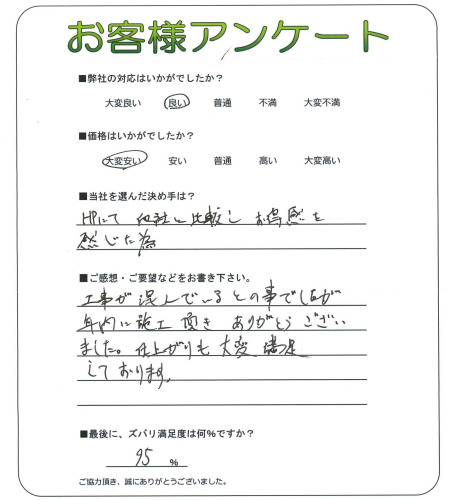 お客様アンケート
■弊社の対応はいかがでしたか？
大変良い 良い 普通 不満 大変不満
■価格はいかがでしたか？
大変安い 安い 普通 高い 大変高い
■当社を選んだ決め手は？
HPにて 他社と比較し お得感を
感じた為
■ご感想・ご要望などをお書き下さい。
工事が混んでいるとの事でしたが
年内に施工頂きありがとうござい
ました。仕上がりも大変満足
しております。
■最後に、ズバリ満足度は何%ですか？
95 %
ご協力頂き、誠にありがとうございました。